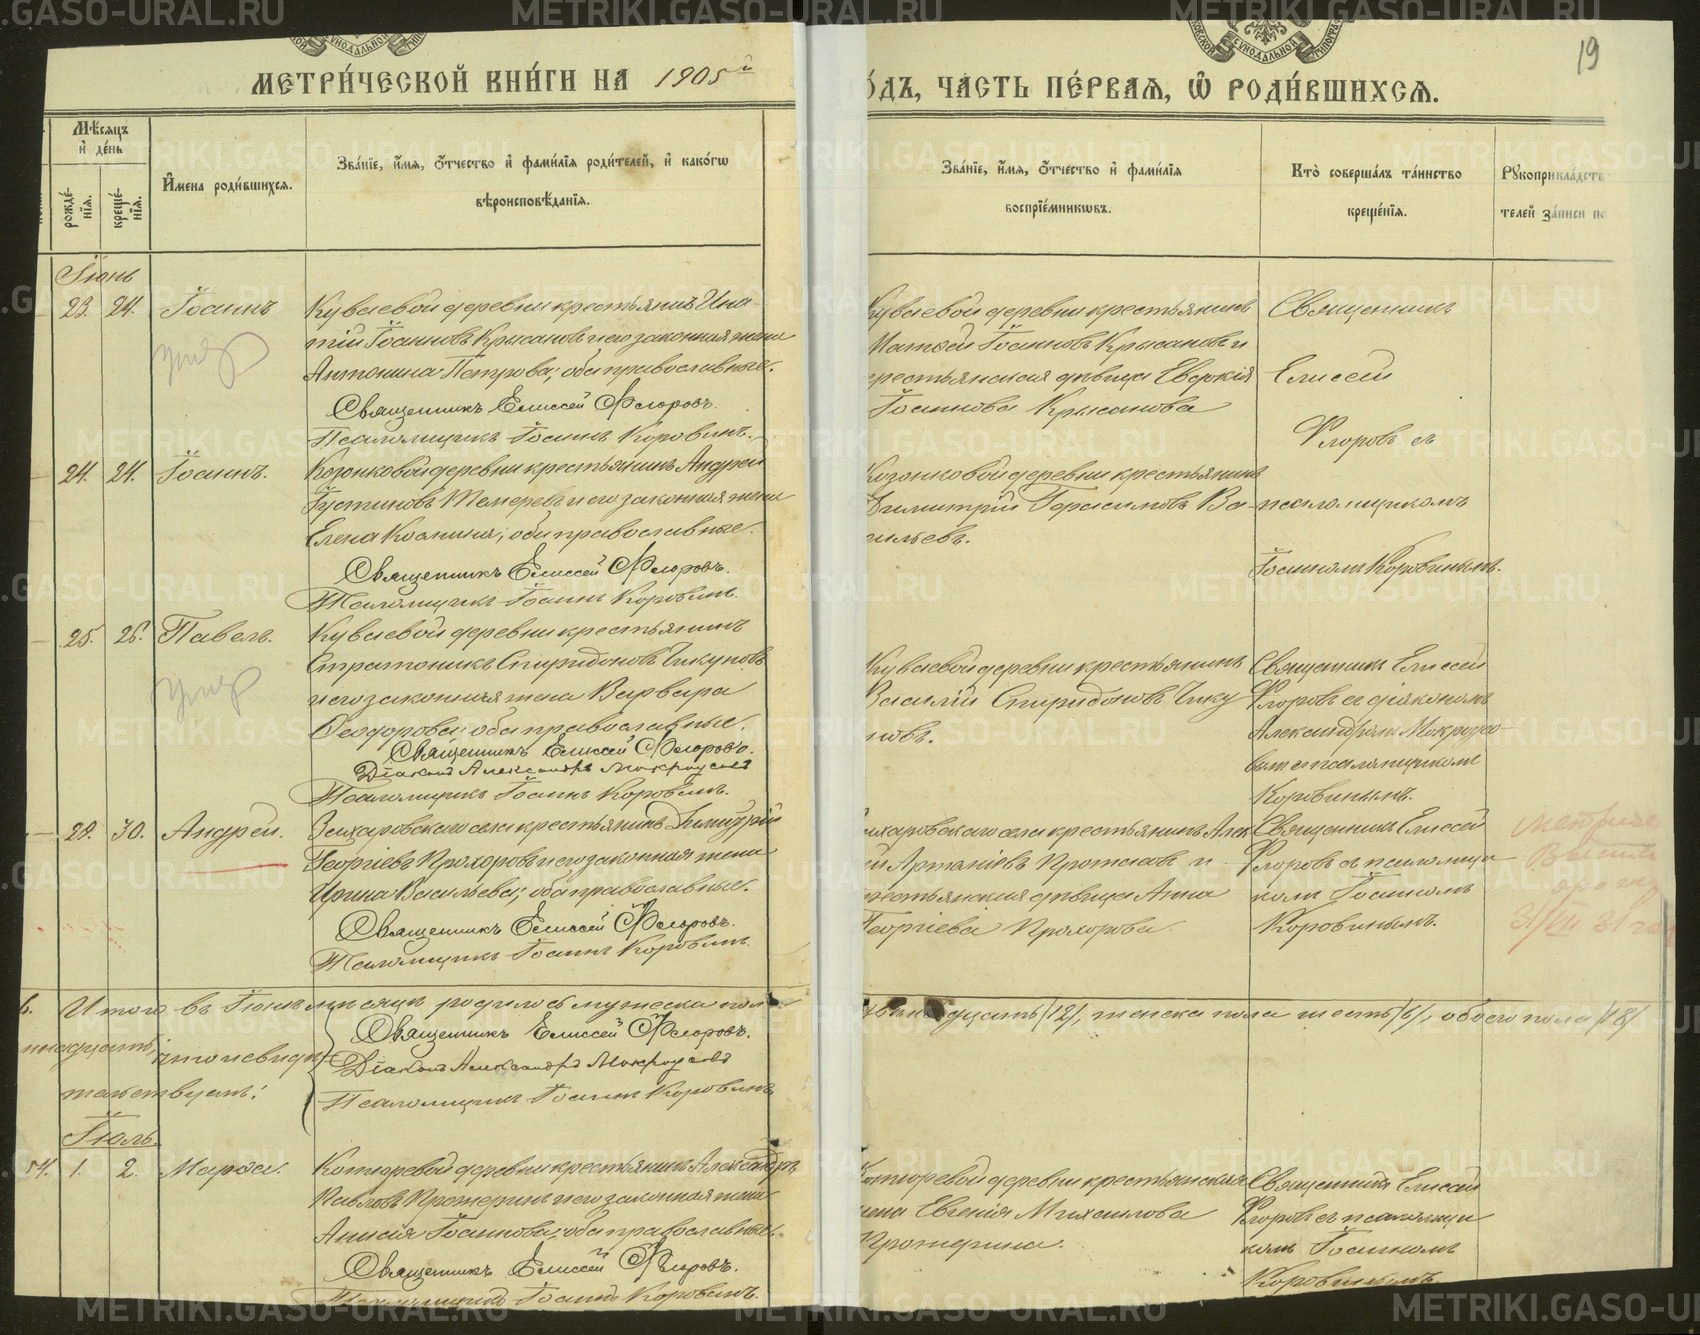 МЕТРИ́ЧЕСКОЙ КНИ́ГИ НА 1905й
О́ДЪ, ЧА́СТЬ ПЕ́РВАѦ, Ѡ РОДИ́ВШИХСѦ.
19
Мѣсяцъ и де́нь
рожде́нїя.
креще́нїя.
И҆мена роди́вшихся.
Зва́нїе, и҆́мя, ѻ҆́тчество и҆ фами́лїя роди́телей, и҆ како́гѡ
вѣроисповѣ́данїя.
Зва́нїе, и҆́мя, ѻ҆́тчество и҆ фами́лїя
воспрїе́мникѡвъ.
Кто̀ соверша́лъ та́инство
креще́нїя.
Рꙋкоприкла́дств
телей за́писи по
Іюнь
23. 24. Іоаннъ
Куваевой деревни крестьянинъ Ипа-
тій Іоанновъ Крысановъ и его законная жена
Антонина Петрова; оба православные.
Священникъ Елиссей Флоровъ.
Псаломщикъ Іоаннъ Коровинъ.
Куваевой деревни крестьянинъ
Матѳей Іоанновъ Крысановъ и
крестьянская дѣвица Евдокія
Іоаннова Крысанова
Священникъ
Елиссей
Флоровъ съ
псаломщикомъ
Іоанномъ Коровинымъ.
24. 24. Іоаннъ.
деревни крестьянинъ Андрей
Іустиновъ и его законная жена
Елена Козмина; оба православные.
Священникъ Елиссей Флоровъ.
Псаломщикъ Іоаннъ Коровинъ.
деревни крестьянинъ
Димитрій Герасимовъ Ва-
сильевъ.
25. 26. Павелъ.
Куваевой деревни крестьянинъ
Стратоникъ Спиридоновъ Чикуновъ
и его законная жена Варвара
Ѳеодорова; оба православные.
Священникъ Елиссей Флоровъ.
Діаконъ Александръ Мокроусовъ
Псаломщикъ Іоаннъ Коровинъ.
Куваевой деревни крестьянинъ
Василій Спиридоновъ Чику
новъ.
Священникъ Елиссей
Флоровъ съ діакономъ
Александромъ Мокроусо-
вымъ и псаломщикомъ
Коровинымъ.
29. 30. Андрей.
села крестьянинъ Димитрій
Георгіевъ Прохоровъ и его законная жена
Ирина Васильева; оба православные.
Священникъ Елиссей Флоровъ.
Псаломщикъ Іоаннъ Коровинъ.
села крестьянинъ Алек
и
крестьянская дѣвица Анна
Георгіева Прохорова.
Священникъ Елиссей
Флоровъ съ псаломщи
комъ Іоанномъ
Коровинымъ.
31/VII 31 год
Итого въ Іюнѣ мѣсяцѣ родилось мужеска пол
двѣнадцать /12/, женска пола шесть /6/, обоего пола /18/
Священникъ Елиссей Флоровъ.
Діаконъ Александръ Мокроусовъ
Псаломщикъ Іоаннъ Коровинъ
Іюль.
54. 1. 2. Марѳа.
деревни крестьянинъ Александръ
Павловъ Протеринъ и его законная жена
Анисія Іоаннова; оба православные.
Священникъ Елиссей Флоровъ.
Псаломщикъ Іоаннъ Коровинъ.
деревни крестьянская
жена Евгенія Михаилова
Протерина.
Священникъ Елиссей
Флоровъ съ псаломщи
комъ Іоанномъ
Коровинымъ
METRIKI.GASO-URAL.RU